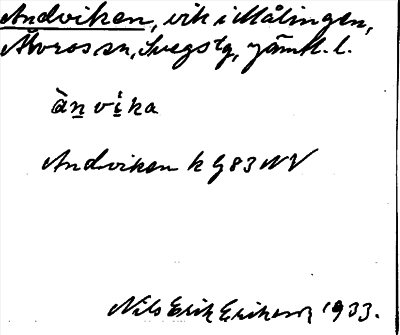 Andviken, vik i Målingen,
Älvros sn, Svegs tg, Jämtl. l.
ànvika
Andviken k G 83 NV
Nils Erik Eriksson 1933.